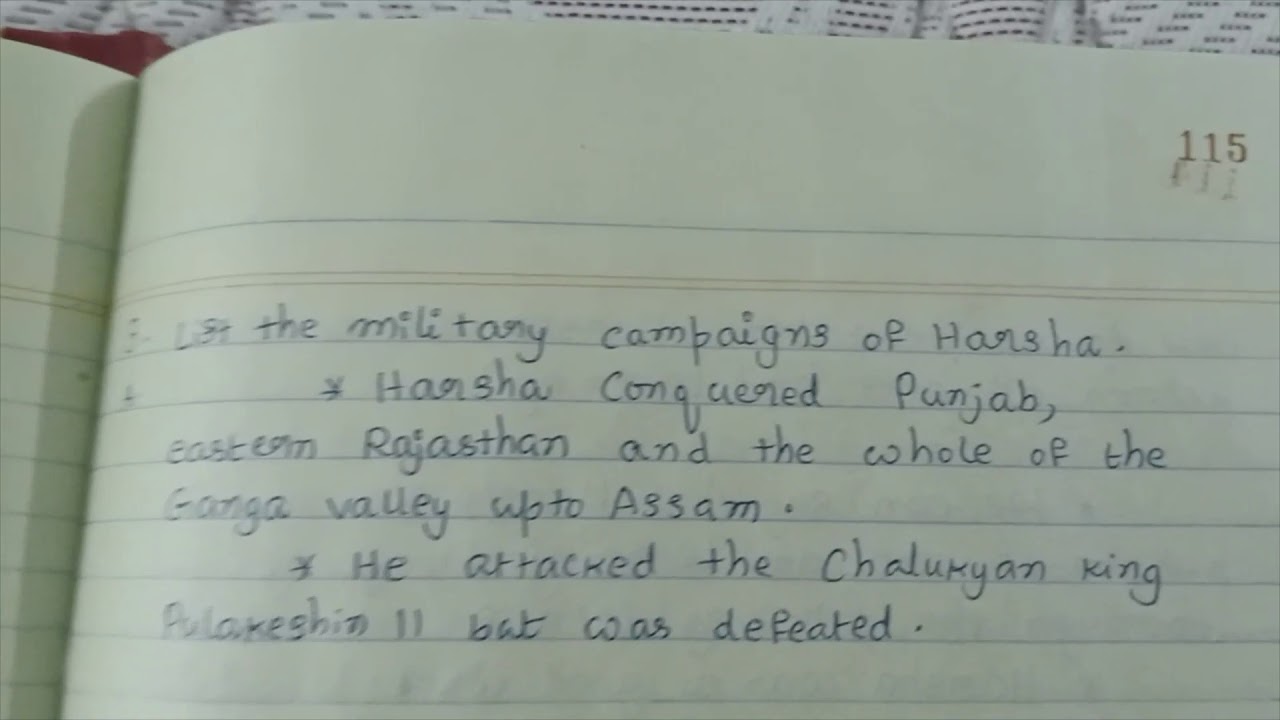 115
List the military campaigns of Harsha.
* Harsha Conquered Punjab,
eastern Rajasthan and the whole of the
Ganga valley upto Assam.
* He attacked the Chalukyan king
Pulakeshin II but was defeated.